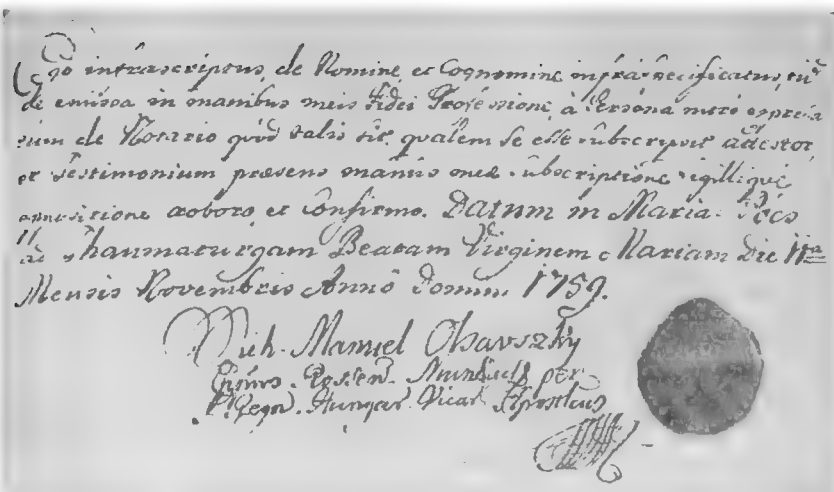 Ego infrascriptus, de Nomine, et Cognomine infra specificatus, tùm
de emissa in manibus meis Fidei Professione, à Persona mero expres-
sim de Notario quòd talis sit, qualem se esse subscripsit attestor
et Testimonium praesens manûs meae subscriptione, sigillique
appositione roboro, et Confirmo. Datum in Maria-Pócs
ad Thaumaturgam Beatam Virginem Mariam Die 11a
Mensis Novembris Annô Domini 1759.
Mich. Manuel Olsavszky
Eppus Rossen. Munkacs per
Regn. Hungar. Vicar. Apostlcus